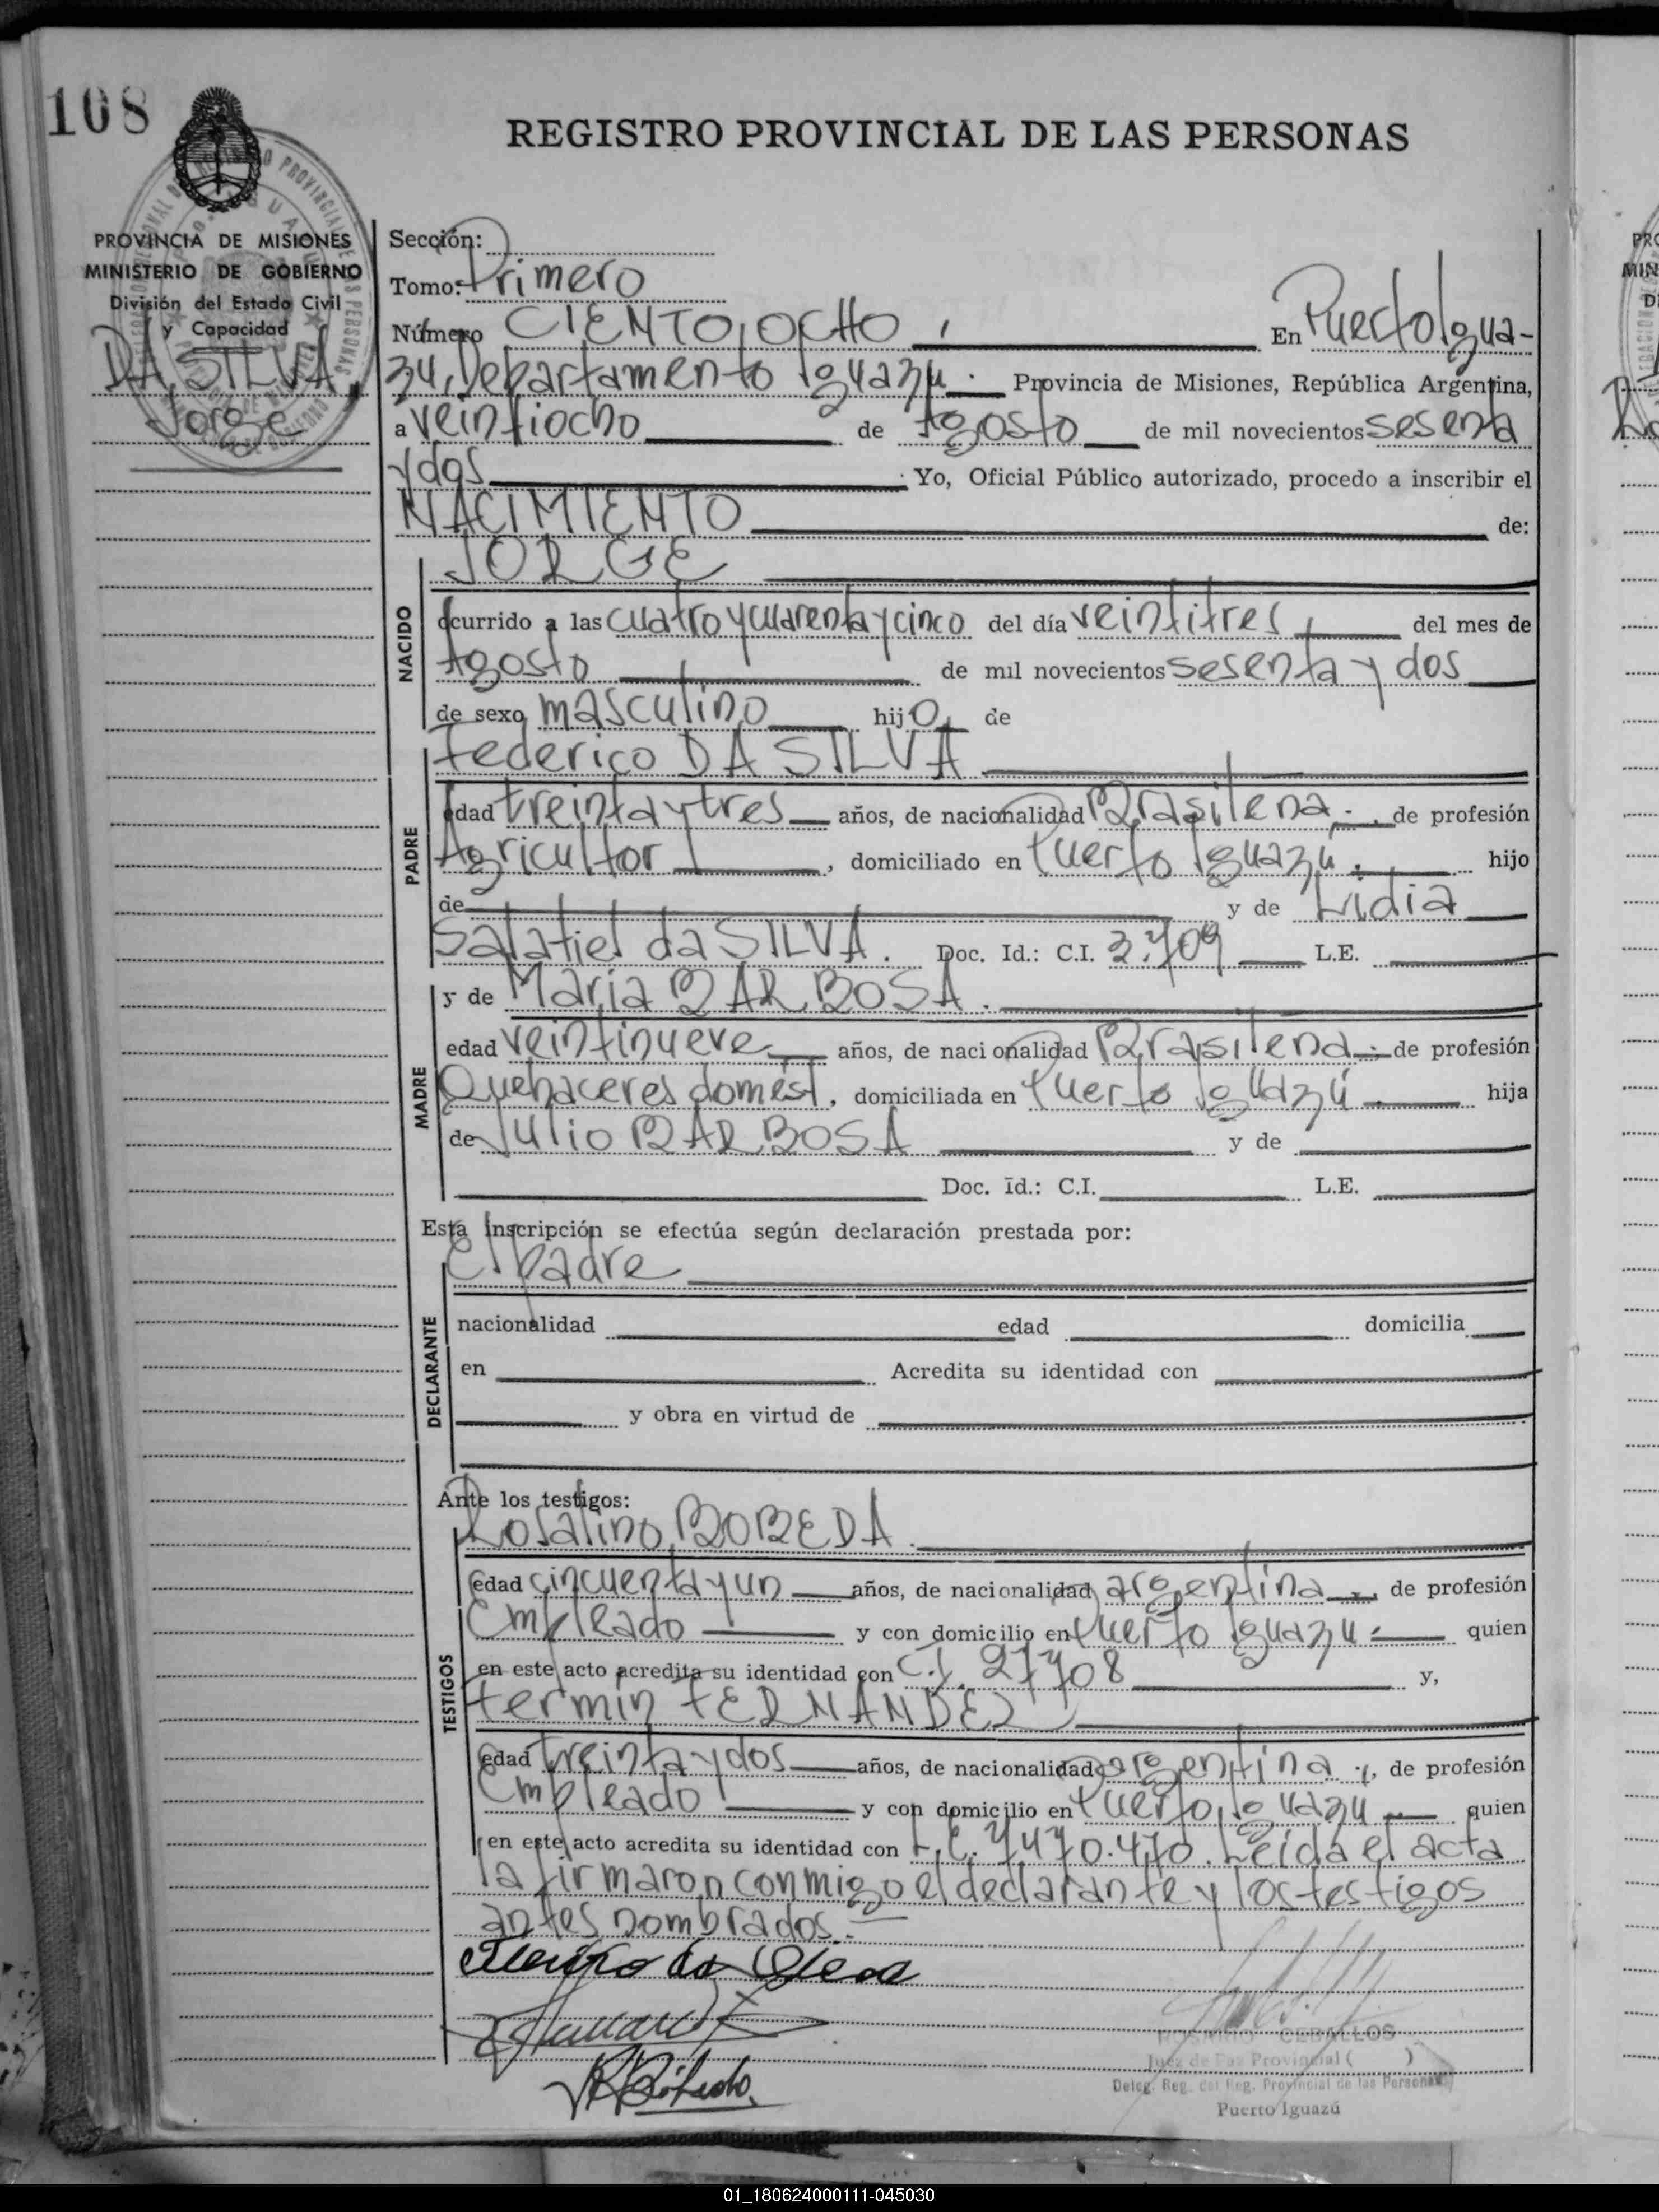 108
REGISTRO PROVINCIAL DE LAS PERSONAS
PROVINCIA DE MISIONES
MINISTERIO DE GOBIERNO
División del Estado Civil
y Capacidad
DA SILVA,
Jorge
Sección:
Tomo: Primero
Número CIENTO OCHO, En Puerto Igua-
zú, Departamento Iguazú. Provincia de Misiones, República Argentina,
a veintiocho de Agosto de mil novecientos sesenta
y dos. Yo, Oficial Público autorizado, procedo a inscribir el
NACIMIENTO de:
JORGE
NACIDO
ocurrido a las cuatro y cuarenta y cinco del día veintitres del mes de
Agosto de mil novecientos sesenta y dos
de sexo masculino hijo de
Federico DA SILVA
PADRE
edad treinta y tres años, de nacionalidad Brasilena. de profesión
Agricultor, domiciliado en Puerto Iguazú. hijo
de y de Lidia
Salatiel da SILVA. Doc. Id.: C.I. 3.709 L.E.
y de Maria BARBOSA.
MADRE
edad veintinueve años, de nacionalidad Brasilena de profesión
Quehaceres domést, domiciliada en Puerto Iguazú hija
de Julio BARBOSA y de
Doc. Id.: C.I. L.E.
Esta inscripción se efectúa según declaración prestada por:
El padre
DECLARANTE
nacionalidad edad domicilia
en Acredita su identidad con
y obra en virtud de
Ante los testigos:
Rosalino BOBEDA.
TESTIGOS
edad cincuenta y un años, de nacionalidad argentina, de profesión
Empleado y con domicilio en Puerto Iguazu quien
en este acto acredita su identidad con C.I. 27708 y,
Fermin FERNANDEZ
edad treinta y dos años, de nacionalidad argentina, de profesión
Empleado y con domicilio en Puerto Iguazu quien
en este acto acredita su identidad con L.E. 7470.470. Leída el acta
la firmaron conmigo el declarante y los testigos
antes nombrados.
ROSARIO CEBALLOS
Juez de Paz Provincial ( )
Deleg. Reg. del Reg. Provincial de las Personas
Puerto Iguazú
01_180624000111-045030